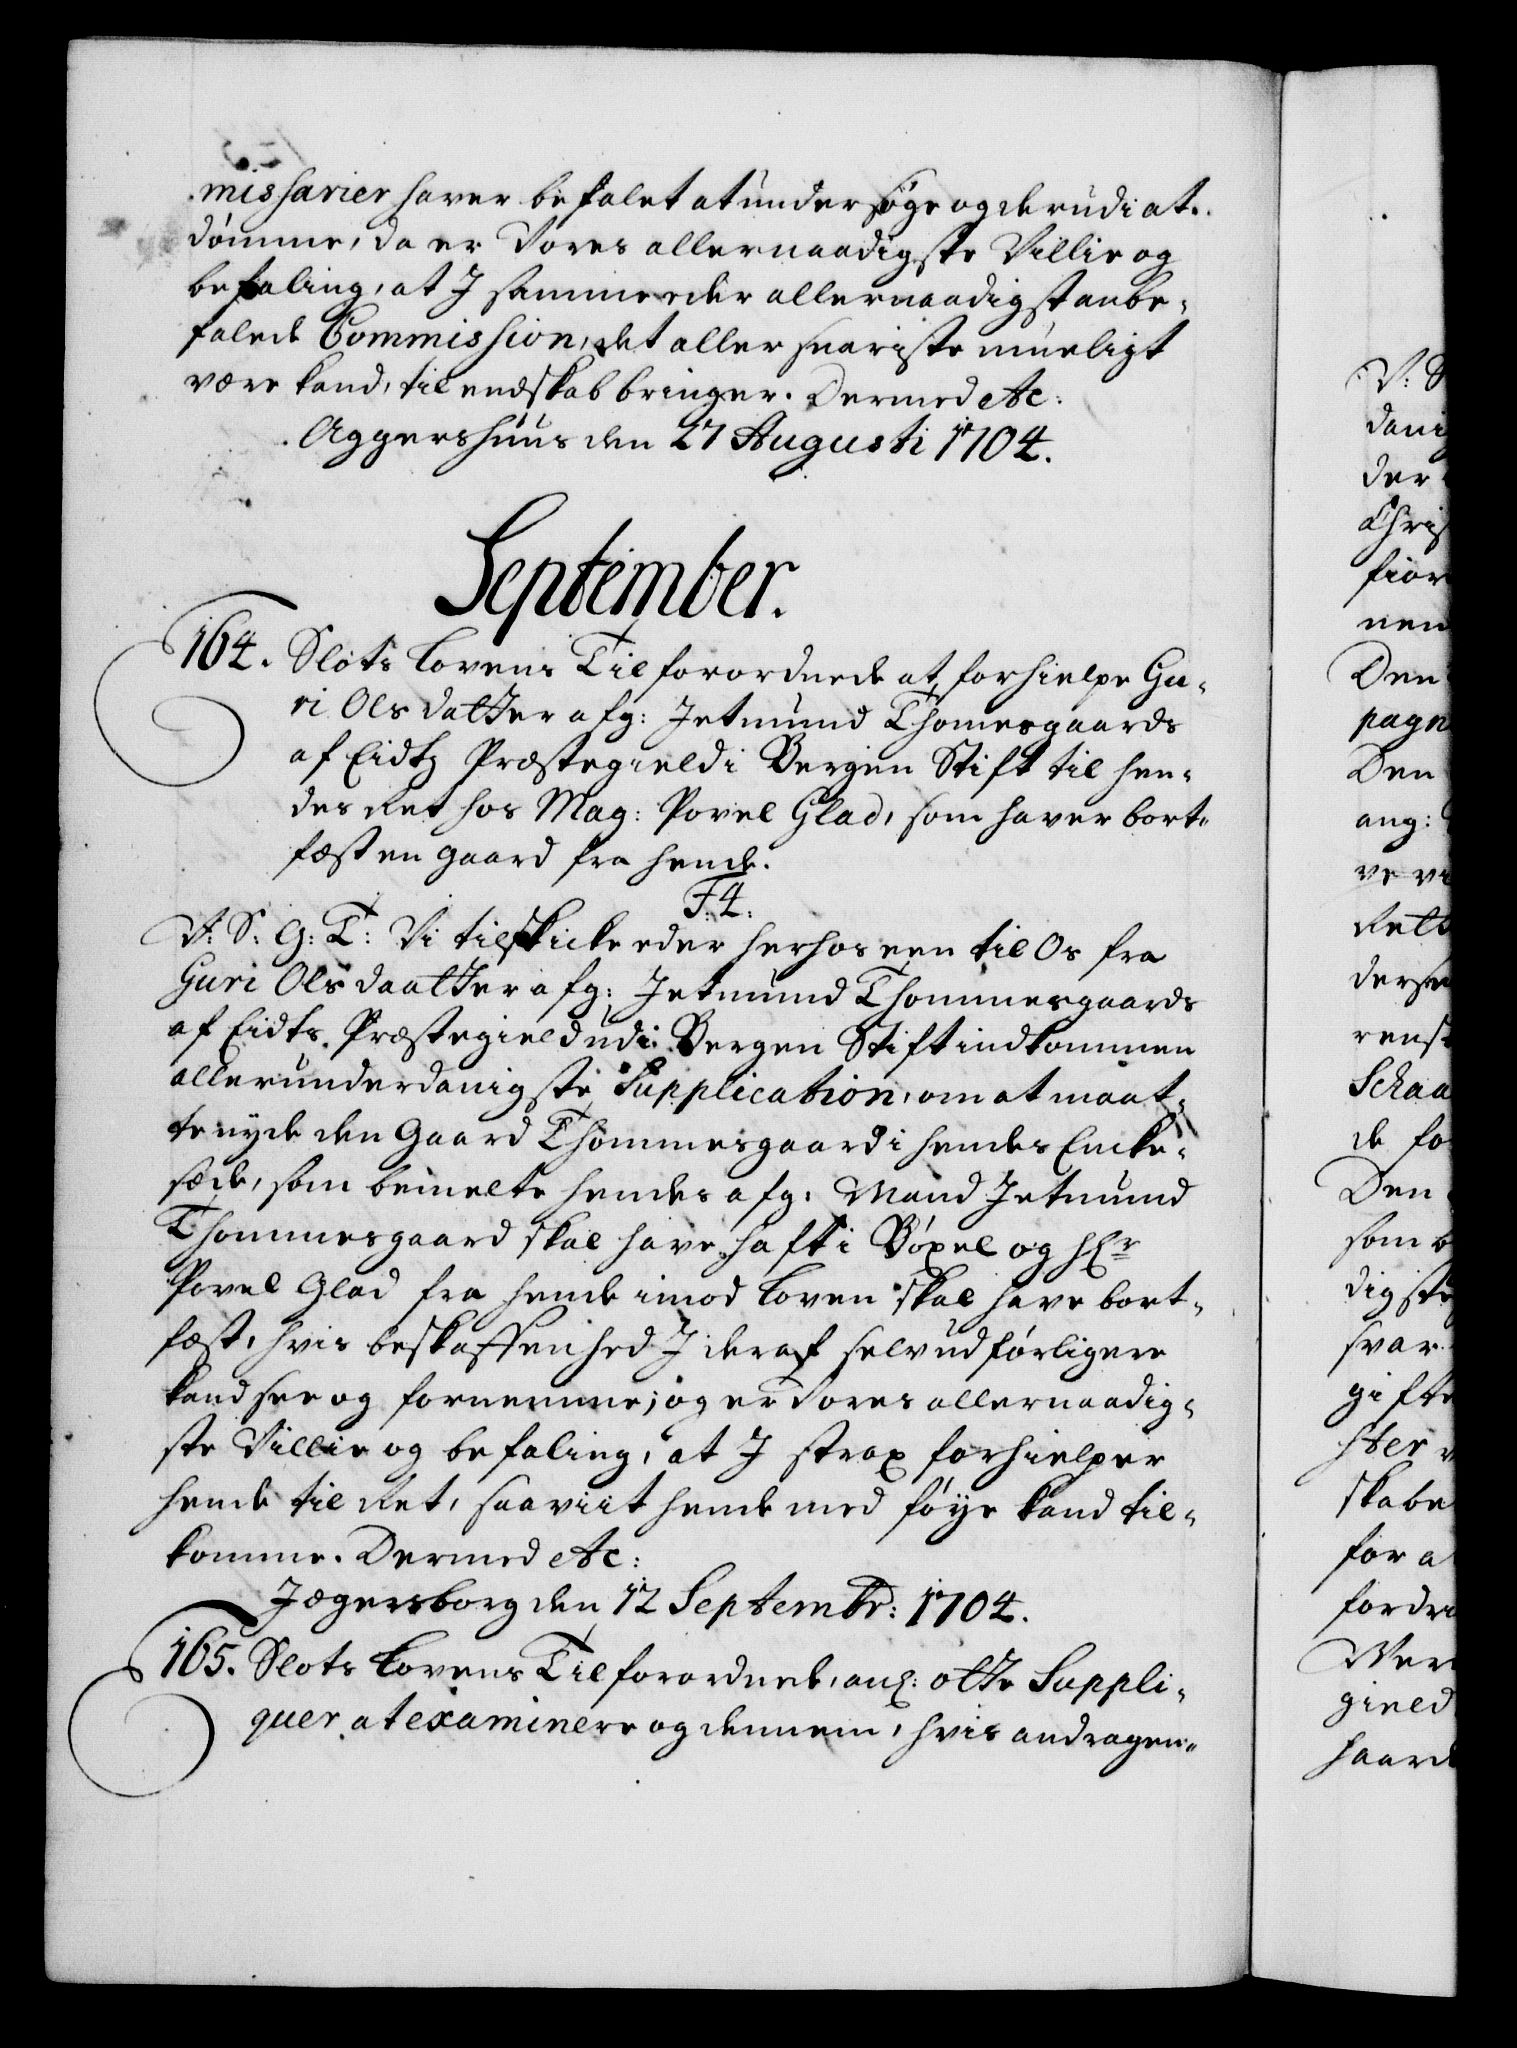 missarier haver befalet at undersøge og derudi at
dømme, da er Vores allernaadigste Villie og
befaling, at I samme eder allernaadigst anbe-
falede Commission, det aller snariste mueligt
være kand, til endskab bringer. Dermed etc:
Aggershuus den 27 Augusti 1704.
September.
164. Slots Lovens Tilforordnede at forhielpe Gu-
ri Olsdatter afg: Jetmund Thomesgaards
af Eidtz Præstegield i Bergen Stift til hen-
des Ret hos Mag: Povel Glad, som haver bort-
fæst en gaard fra hende.
F: 4.
V: S: G: T: Vi tilskicke eder herhos een til Os fra
Guri Olsdaatter afg: Jetmund Thommesgaards
af Eidts Præstegield udi Bergen Stift indkommen
allerunderdanigste Supplication, om at maat-
te nyde den Gaard Thommesgaard i hendes Encke-
sæde, som bemelte hendes afg: Mand Jetmund
Thommesgaard skal have haft i Bøxel og HEr
Povel Glad fra hende imod Loven skal have bort-
fæst, hvis beskaffenhed I deraf selv udførligere
kand see og fornemme; og er Vores allernaadig-
ste Villie og befaling, at I strax forhielper
hende til Ret, saaviit hende med føye kand til-
komme. Dermed etc:
Jægersborg den 12 Septembr: 1704.
165. Slots Lovens Tilforordnede, anl: otte Suppli-
quer at examinere og dennem, hvis andragen-
V: S
dani
der
Chris
fior
nen
Den
pagn
Den
ang:
ve vi
Rett
derse
rens
Schaa
de fo
Den
som b
digste
svar
gifte
hter
skabe
for a
fordr
Ver
gield
haard